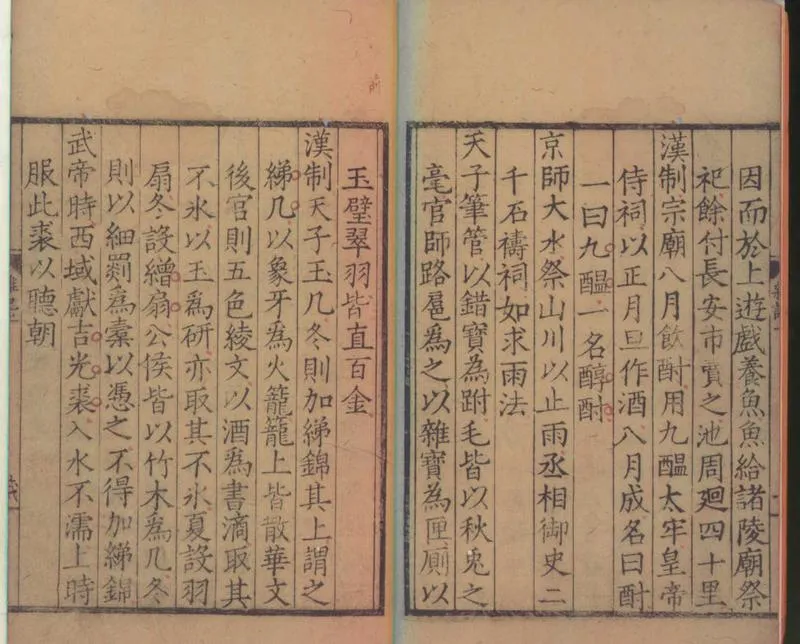 因而於上遊戲養魚魚給諸陵廟祭
祀餘付長安市賣之池周廻四十里
漢制宗廟八月飲酎用九醞太牢皇帝
侍祠以正月旦作酒八月成名曰酎
一曰九醞一名醇酎
京師大水祭山川以止雨丞相御史二
千石禱祠如求雨法
天子筆管以錯寶為跗毛皆以秋兎之
毫官師路扈為之以雜寶為匣廁以
玉璧翠羽皆直百金
漢制天子玉几冬則加綈錦其上謂之
綈几以象牙為火籠籠上皆散華文
後宮則五色綾文以酒為書滴取其
不氷以玉為硯亦取其不氷夏設羽
扇冬設繒扇公侯皆以竹木為几冬
則以細罽為橐以憑之不得加綈錦
武帝時西域獻吉光裘入水不濡上時
服此裘以聽朝